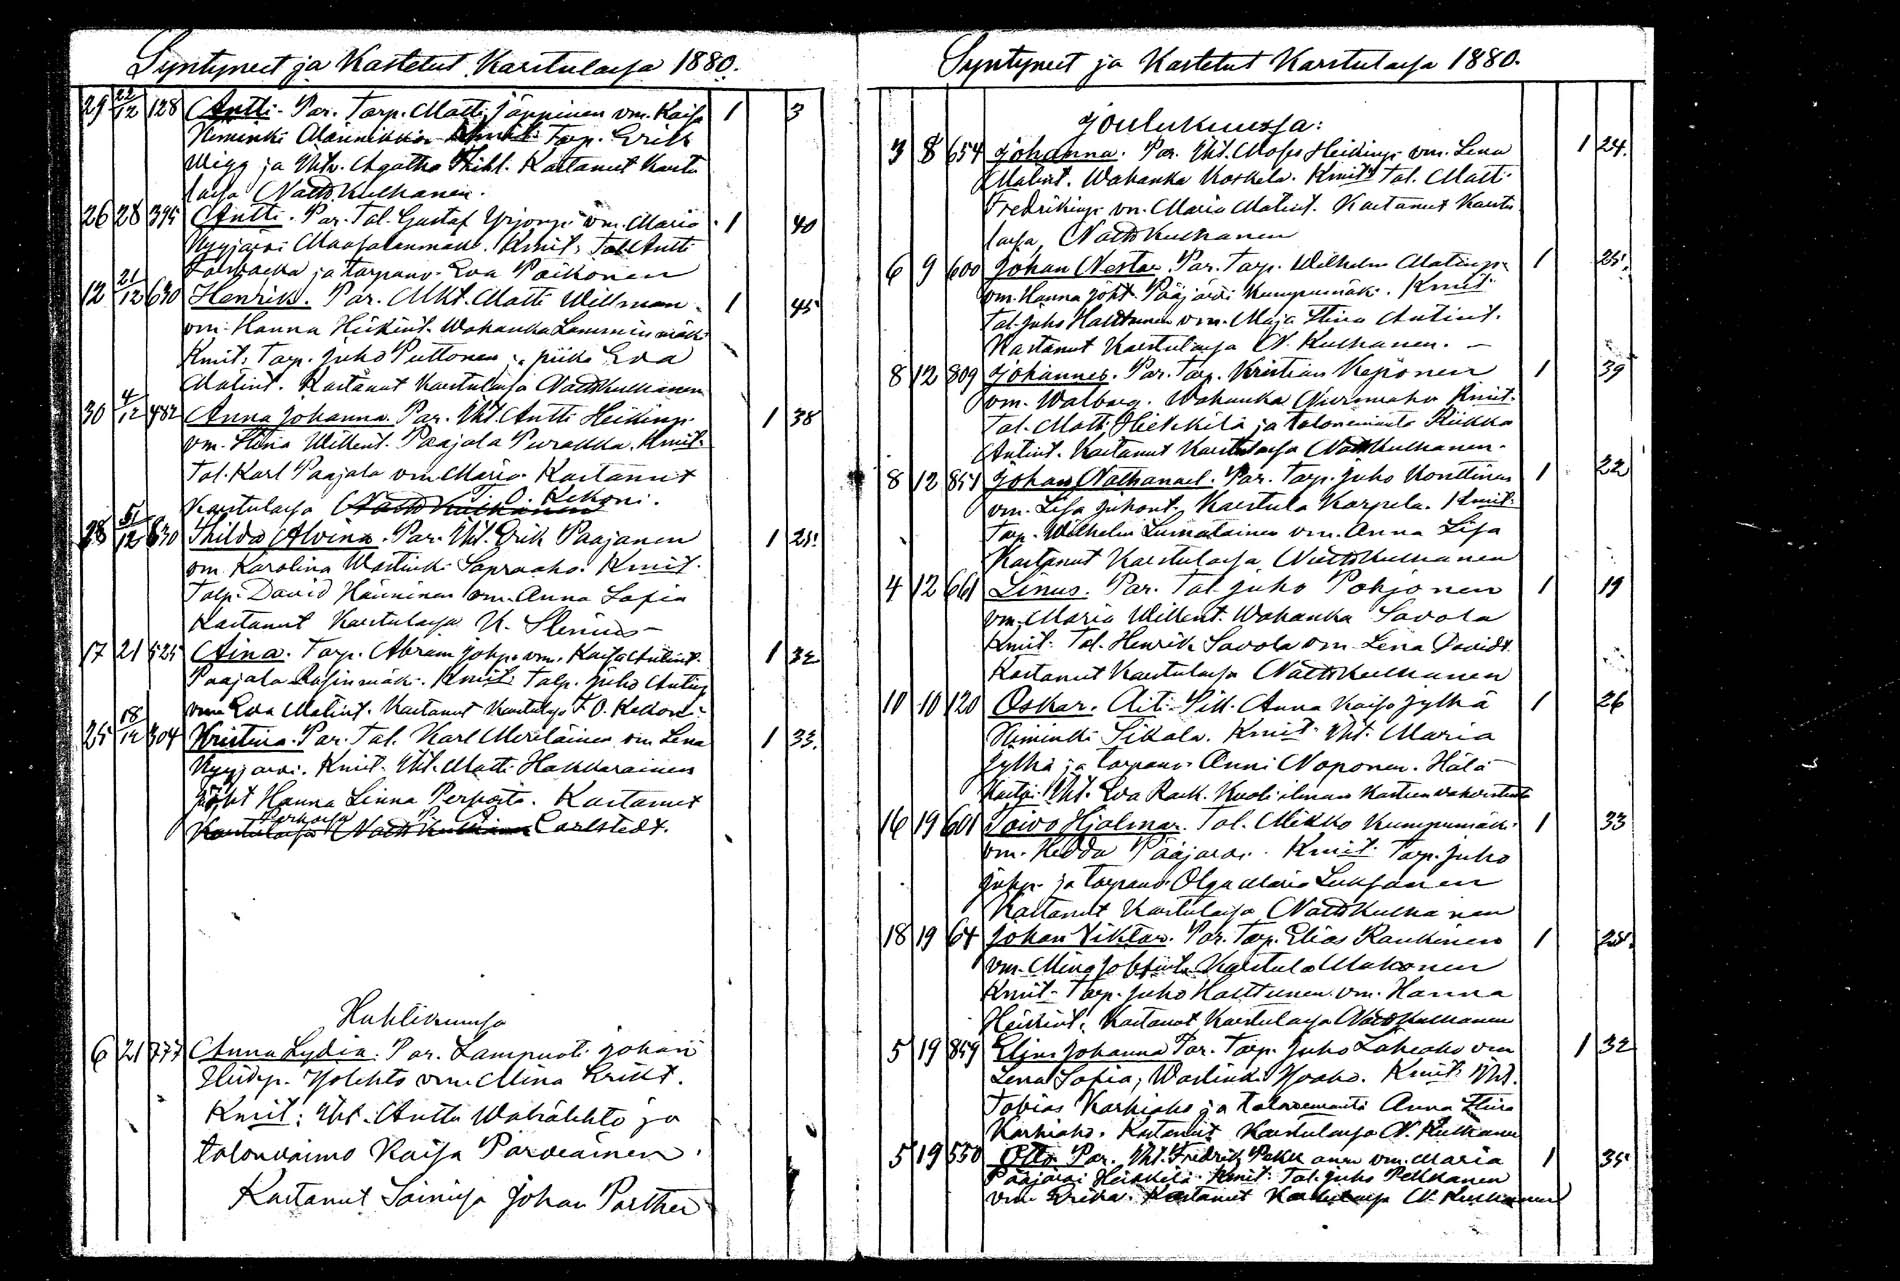 Syntyneet ja Kastetut Karstulassa 1880.
29 22/12 128 Antti. Par. Torp. Matti Jäppinen vm. Kaisa 1 3
Kiminki Männikkö. Torp. Erik
Wigg ja Itstn. Agatha Kastanut Karstu
lassa Natth Kulhanen.
26 28 395 Antti. Par. Tal. Gustaf Yrjönp. vm. Maria 1 40
Kyyjärvi Kmit. Tal. Antti
ja torpanv. Eva Poikonen
12 21/12 630 Henrik. Par. Mkt. Matti Willman 1 45
vm. Hanna Heikint. Wahanka Lamminmäki
Kmit. Torp. Juho Puttonen ja piika Eva
Matint. Kastanut Karstulassa Natth Kulhanen
30 4/12 482 Anna Johanna. Par. Itst. Antti Heikinp. 1 38
vm. Stina Willent. Paajala Perakka. Kmit.
Tal. Karl Paajala vm. Maria. Kastanut
Karstulassa F. O. Kekoni.
28 5/12 830 Hilda Alvina. Par. Itst. Erik Paajanen 1 25.
vm. Karolina Wastinki Kmit.
Talp. David Hänninen vm. Anna Sofia
Kastanut Karstulassa K. Stenius
17 21 525 Aina. Torp. Abram Johp. vm. Kaisa Antint. 1 32
Paajala Kmit. Talp. Juho Antinp.
vm. Eva Matint. Kastanut Karstulassa F. O. Kekoni
25 18/12 304 Kristina. Par. Tal. Karl Meriläinen vm. Lena 1 33.
Kyyjärvi. Kmit. Itst. Matti Hakkarainen
Hanna Linna Perhosta. Kastanut
Perhossa Carlstedt.
Huhtikuussa
6 21 777 Anna Lydia. Par. Lampuoti Johan
Heikp. Ylilehto vm. Mina Erikt.
Kmit: Itst. Antti Wahälehto ja
talonvaimo Kaisa Parviainen.
Kastanut Soinissa Johan Porthen
Syntyneet ja Kastetut Karstulassa 1880.
Joulukuussa:
3 8 654 Johanna. Par. Itst. Moses Heikinp. vm. Lena 1 24.
Matint. Wahanka Koskela. Kmit. Tal. Matti
Fredrikinp. vm. Maria Matint. Kastanut Karstu
lassa, Natth Kulhanen
6 9 600 Johan Nestor. Par. Torp. Wilhelm Matinp. 1 25.
vm. Hanna Joht. Pääjärvi Kumpumäki. Kmit.
Tal. Juho Halttunen vm. Maja Stina Antint.
Kastanut Karstulassa N. Kulhanen.
8 12 809 Johannes. Par. Torp. Kristian Kepönen 1 39
vm. Walborg. Wahanka Kmit.
Tal. Matti Hiekkilä ja talonemäntä Riikka
Antint. Kastanut Karstulassa Natth Kulhanen.
8 12 851 Johan Nathanael. Par. Torp. Juho Konttinen 1 22
vm. Lisa Juhont. Karstula Karpela. Kmit.
Torp. Wilhelm Lumatainen vm. Anna Lisa
Kastanut Karstulassa Natth Kulhanen
4 12 661 Linus. Par. Tal. Juho Pohjonen 1 19
vm. Maria Willent. Wahanka Savola
Kmit. Tal. Henrik Savola vm. Lena Davidt.
Kastanut Karstulassa Natth Kulhanen
10 10 120 Oskar. Äiti. Piik. Anna Kaisa Jylhä 1 26
Kiminki Sikala. Kmit. Itst. Maria
Jylhä ja torpanv. Anni Noponen. Hätä
kasti. Itst. Eva Rask. Kuoli ilman kasteen vahvistusta
16 19 601 Toivo Hjalmar. Tal. Mikko Kumpumäki 1 33
vm. Hedda Pääjärvi. Kmit. Torp. Juho
Juhp. ja torpanv. Olga Maria Leksonen
Kastanut Karstulassa Natth Kulhanen
18 19 64 Johan Viktor. Par. Torp. Elias Raukinen 1 24.
vm. Mina Karstula Mukonen
Kmit. Torp. Juho Halttunen vm. Hanna
Heikint. Kastanut Karstulassa Natth Kulhanen
5 19 859 Elina Johanna Par. Torp. Juho Lakeaho vm 1 32
Lena Sofia, Wastinki Kmit. Itst.
Tobias Karkiaho ja talonemäntä Anna Stina
Karkiaho. Kastanut Karstulassa N. Kulhanen
5 19 550 Otto. Par. Itst. Fredrik Pekkanen vm. Maria 1 35
Pääjärvi Heikkilä Kmit. Tal. Juho Pekkanen
vm. Erika. Kastanut Karstulassa N. Kulhanen